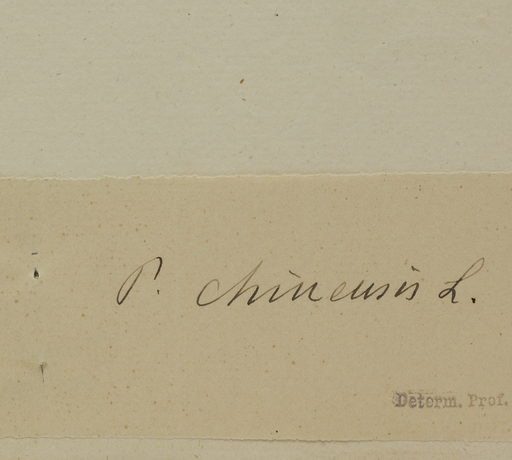 P. chinensis L.
Determ. Prof.